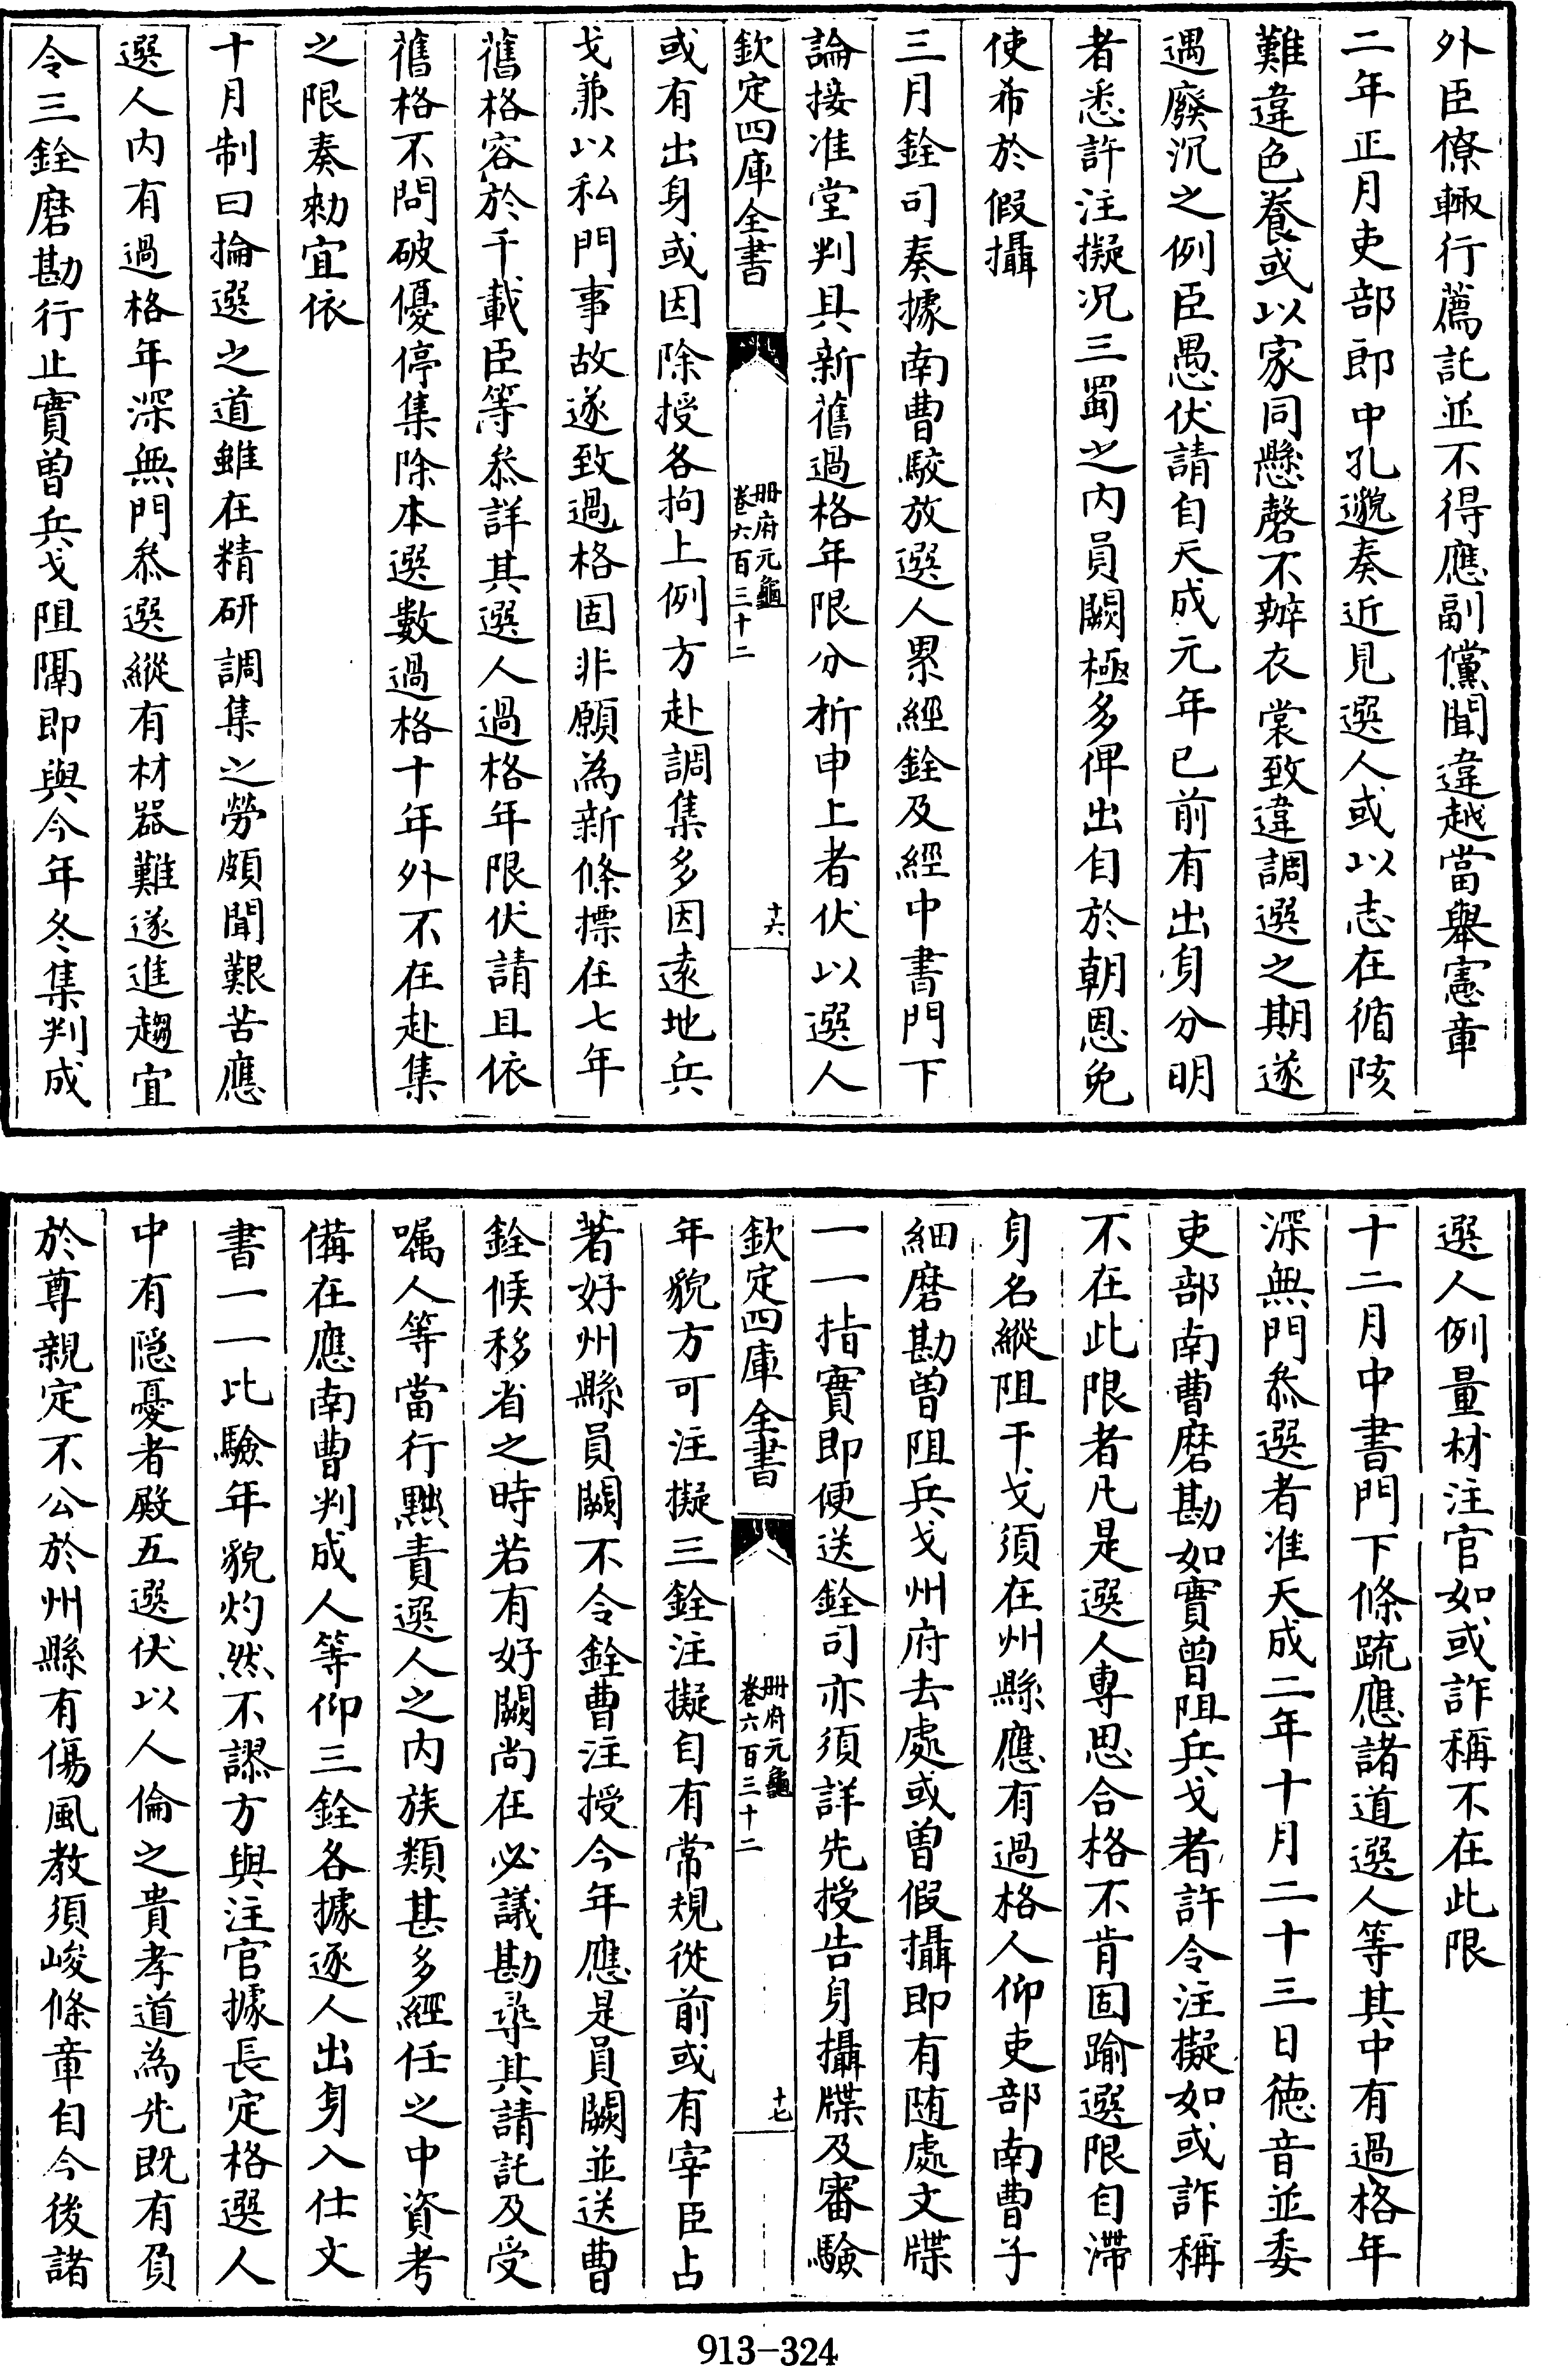 外臣僚輙行薦託並不得應副儻聞違越當舉憲章
二年正月吏部郎中孔邈奏近見選人或以志在循陔
難違色養或以家同懸磬不辦衣裳致違調選之期遂
遇廢沉之例臣愚伏請自天成元年已前有出身分明
者悉許注擬况三蜀之内員闕極多俾出自於朝恩免
使希於假攝
三月銓司奏據南曹駮放選人累經銓及經中書門下
論接准堂判具新舊過格年限分析申上者伏以選人
欽定四庫全書
冊府元龜
卷六百三十二
十六
或有出身或因除授各拘上例方赴調集多因逺地兵
戈兼以私門事故遂致過格固非願為新條摽在七年
舊格容於千載臣等叅詳其選人過格年限伏請且依
舊格不問破優停集除本選數過格十年外不在赴集
之限奏勑宜依
十月制曰掄選之道雖在精研調集之勞頗聞艱苦應
選人内有過格年深無門叅選縱有材器難遂進趨宜
令三銓磨勘行止實曾兵戈阻隔即與今年冬集判成
選人例量材注官如或詐稱不在此限
十二月中書門下條疏應諸道選人等其中有過格年
深無門叅選者准天成二年十月二十三日徳音並委
吏部南曹磨勘如實曾阻兵戈者許令注擬如或詐稱
不在此限者凡是選人專思合格不肯固踰選限自滯
身名縱阻干戈須在州縣應有過格人仰吏部南曹子
細磨勘曾阻兵戈州府去處或曾假攝即有随處文牒
一一指實即便送銓司亦須詳先授告身攝牒及審驗
欽定四庫全書
冊府元龜
卷六百三十二
十七
年貌方可注擬三銓注擬自有常規從前或有宰臣占
著好州縣員闕不令銓曹注授今年應是員闕並送曹
銓候移省之時若有好闕尚在必議勘尋其請託及受
嘱人等當行黜責選人之内族類甚多經任之中資考
備在應南曹判成人等仰三銓各據逐人出身入仕文
書一一比驗年貌灼然不謬方與注官據長定格選人
中有隠憂者殿五選伏以人倫之貴孝道為先既有負
於尊親定不公於州縣有傷風教須峻條章自今後諸
913-324